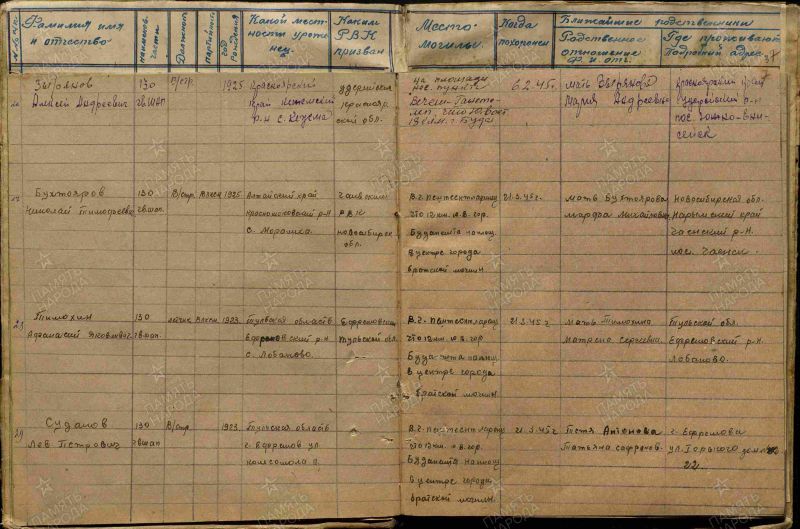 Фамилия имя и отчество
наименов. части
Должность
партийность
год рождения
Какой местности уроженец
Каким РВК призван
Место могилы
Когда похоронен
Ближайшие родственники
Родственное отношение Ф. и. от.
Где проживают Подробный адрес
37
Зырянов
Алексей Андреевич
130
гв. шап
В/стр.
1925
Красноярский
край
р-н с. Кежма
На площади
нас. пункта
13 км. г. Буда
6.2.45 г.
мать Зырянова
Мария Андреевна
Красноярский край
р-н
пос. Южно-Ени-
сейск
Бухтояров
Николай Тимофеевич
130
гвшап
В/стр.
Влксм
1925
Алтайский край
р-н
Чаинским
РВК
Новосибирск.
обл.
что 12 км. ю.в. гор.
Будапешта на площ.
в центре города
братской могилы
21.3.45 г.
мать Бухтоярова
Марфа Михайловна
Новосибирской обл.
Нарымский край
Чаенский р-н.
пос. Чаенск
Тимохин
Афанасий Яковлевич
130
гвшап.
летчик
Влксм
1923.
Тульской область
Ефремовский р-н
с. Лобаново.
Ефремовским
Тульской обл.
что 12 км. ю.в. гор.
Будапешта на площ.
в центре города
братской могилы
21.3.45 г
мать Тимохина
Матрена Сергеевна.
Тульской обл.
Ефремовский р-н.
Лобаново.
29
Суданов
Лев Петрович
130
гвшап.
В/стр.
1923.
Тульской область
г. Ефремов ул.
комсомола
Будапешта на площ
в центре города
братской могилы.
21.3.45 г
Тетя Антонова
Татьяна
г. Ефремова
ул. Горького
22.
ПАМЯТЬ НАРОДА